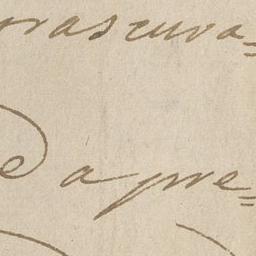 rascura=
e a pre=